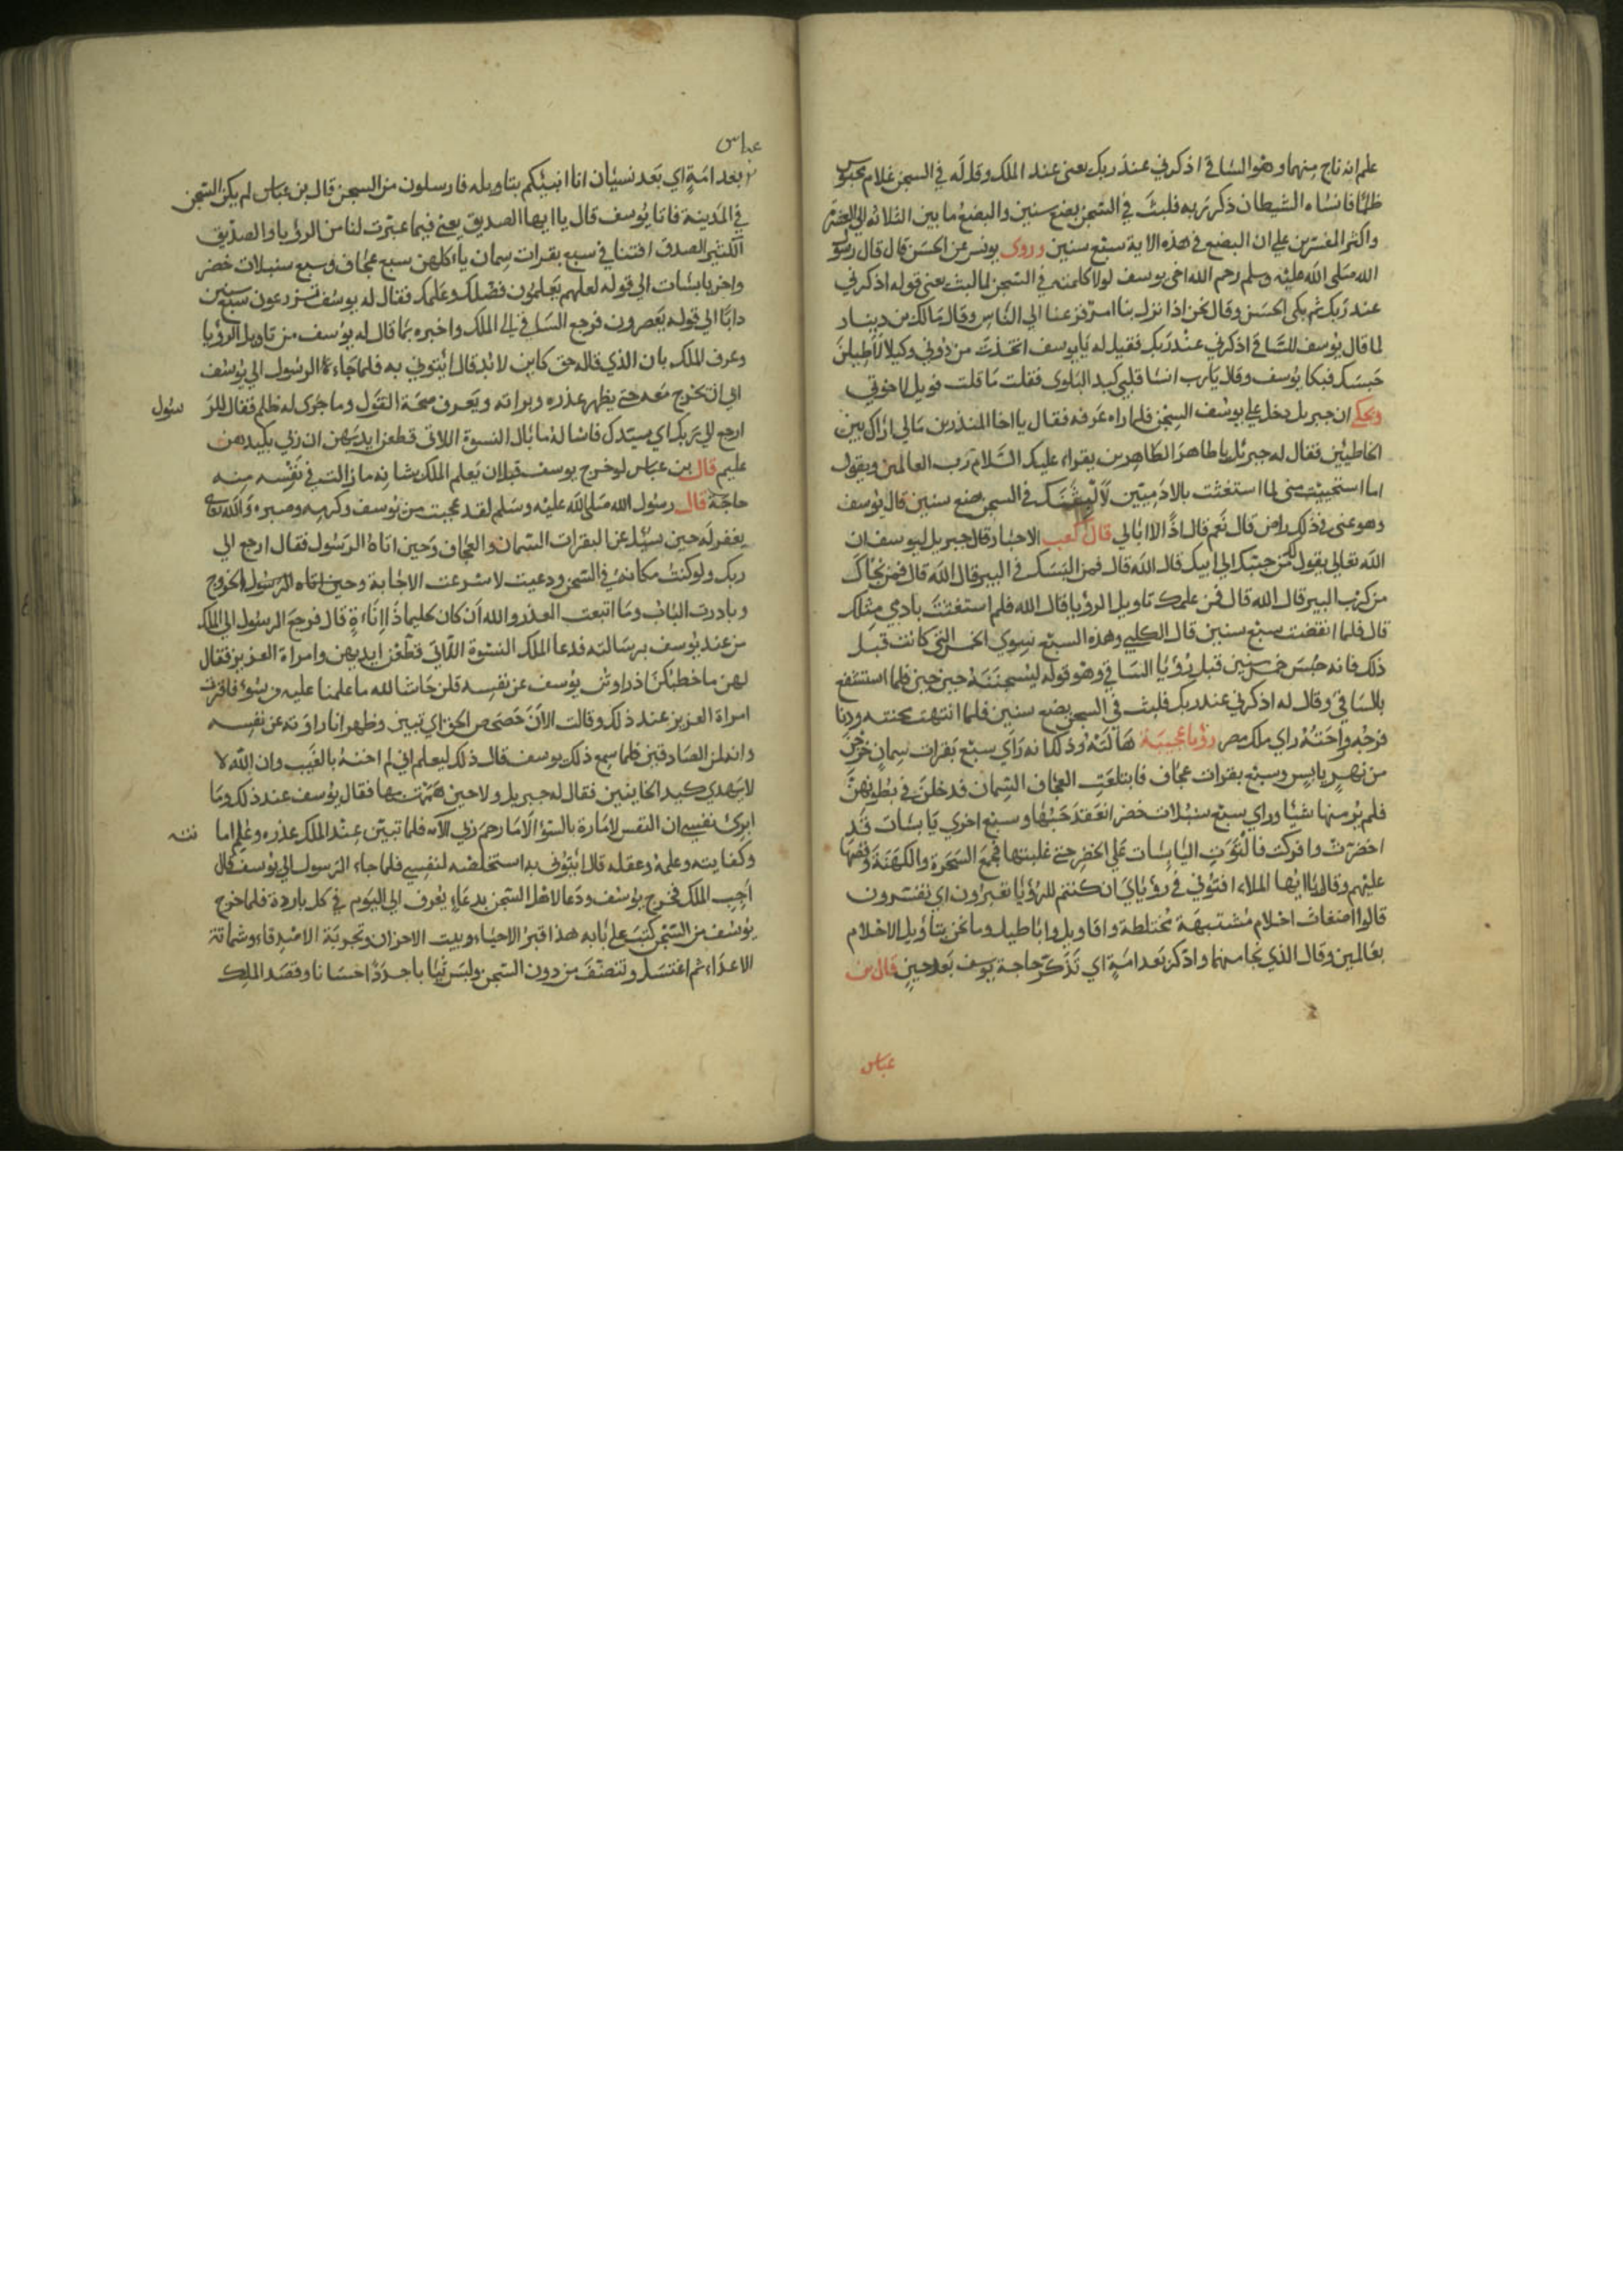 علم انه ناج منهما وهو الساقي اذكرني عند ربك يعني عند الملك وقل له في السجن غلام محبوس
ظلما فانساه الشيطان ذكر ربه فلبث في السجن بضع سنين والبضع ما بين الثلاثه الي العشرة
واكثر المفسرين علي ان البضع في هذه الاية سبع سنين وروي يونس عن الحسن قال قال رسول
الله صلي الله عليه وسلم رحم الله اخي يوسف لولا كلمته في السجن لما لبث يعني قوله اذكرني
عند ربك ثم بكي الحسن وقال نحن اذا نزل بنا امر فزعنا الي الناس وقال مالك بن دينار
لما قال يوسف للساقي اذكرني عند ربك فقيل له يا يوسف اتخذت من دوني وكيلا لاطيلن
حبسك فبكا يوسف وقال يا رب انسا قلبي كيد البلوي فقلت ما قلت فويل لاخوتي
ويحكي ان جبريل دخل علي يوسف السجن فلما راه عرفه فقال يا اخا المنذرين مالي اراك بين
الخاطيين فقال له جبرئل يا طاهر الطاهرين يقراء عليك السلام رب العالمين ويقول
اما استحييت مني لما استغثت بالادميين لالبثنك في السجن بضع سنين قال يوسف
وهو عني في ذلك راض قال نعم قال اذا لا ابالي قال كعب الاحبار قال جبريل ليوسف ان
الله تعالي يقول لك من حببك الي ابيك قال الله قال فمن انسك في البير قال الله قال فمن نجاك
من كرب البير قال الله قال فمن علمك تاويل الرؤيا قال الله فلم استغثت بادمي مثلك
قال فلما انقضت سبع سنين قال الكلبي وهذه السبع سوي الخمس التي كانت قبل
ذلك فانه حبس خمس سنين قبل رؤيا الساقي وهو قوله ليسجننه حين حين فلما استشفع
بالساقي وقال له اذكرني عند ربك فلبث في السجن بضع سنين فلما انتهت محنته ودنا
فرجه وراحته راي ملك مصر رؤيا عجيبة هالته وذلك انه راي سبع بقرات سمان خرجن
من نهر يابس وسبع بقرات عجاف فابتلعت العجاف السمان فدخلن في بطونهن
فلم ير منها شيا وراي سبع سنبلات خضر انعقد حبها وسبع اخري يابسات قد
اخضرت وافركت فالتوت اليابسات علي الخضر حتي غلبتها فجمع السحرة والكهنة وقصها
عليهم وقال يا ايها الملاء افتوني في رؤياي ان كنتم للرؤيا تعبرون اي تفسرون
قالوا اضغاث احلام مشتبهة مختلطة واقاويل واباطيل وما نحن بتأويل الاحلام
بعالمين وقال الذي نجا منهما واذكر بعد امة اي تذكر حاجة يوسف بعد حين قال بن
عباس
عباس
بعد امة اي بعد نسيان انا انبيكم بتاويله فارسلون من السجن قال بن عباس لم يكن السجن
في المدينة فاتا يوسف قال يا ايها الصديق يعني فيما عبرت لنا من الرؤيا والصديق
الكثير الصدق افتنا في سبع بقرات سمان ياكلهن سبع عجاف وسبع سنبلات خضر
واخر يابسات الي قوله لعلهم يعلمون فضلك وعلمك فقال له يوسف تزرعون سبع سنين
دابا الي قوله يعصرون فرجع الساقي الي الملك واخبره بما قال له يوسف من تاويل الرؤيا
وعرف الملك بان الذي قاله حق كاين لا بد قال ايتوني به فلما جاءه الرسول الي يوسف
ابي ان يخرج معه حتي يظهر عذره وبراته ويعرف صحة القول وما جري له ظلم فقال للر سول
ارجع الي ربك اي سيدك فاساله ما بال النسوة اللاتي قطعن ايديهن ان ربي بكيدهن
عليم قال بن عباس لو خرج يوسف قبل ان يعلم الملك بشانه ما زالت في نفسه منه
حاجة قال رسول الله صلي الله عليه وسلم لقد عجبت من يوسف وكرمه وصبره والله تعالي
يغفر له حين سيل عن البقرات السمان والعجاف وحين اتاه الرسول فقال ارجع الي
ربك ولو كنت مكانه في السجن ودعيت لاسرعت الاجابة وحين اتاه الرسول بالخروج
وبادرت الباب وما اتبعت العذر والله ان كان حليما ذا اناءة قال فرجع الرسول الي الملك
من عند يوسف برسالته فدعا الملك النسوة اللاتي قطعن ايديهن وامراة العزيز فقال
لهن ما خطبكن اذ راودتن يوسف عن نفسه قلن حاشا لله ما علمنا عليه من سوء فاقرت
امراة العزيز عند ذلك وقالت الان حصحص الحق اي تبين وظهر انا راودته عن نفسه
وانه لمن الصادقين فلما سمع ذلك يوسف قال ذلك ليعلم اني لم اخنه بالغيب وان الله لا
لا يهدي كيد الخاينين فقال له جبريل ولا حين هممت بها فقال يوسف عند ذلك وما
ابرئ نفسي ان النفس لامارة بالسؤ الا ما رحم ربي الآية فلما تبين عند الملك عذره وعلم اما نته
وكفايته وعلمه وعقله قال ايتوني به استخلصه لنفسي فلما جاء الرسول الي يوسف قال
اجب الملك فخرج يوسف ودعا لاهل السجن بدعاء يعرف الي اليوم في كل باردة فلما خرج
يوسف من السجن كتب علي بابه هذا قبر الاحياء وبيت الاحزان وتجربة الاصدقاء وشماتة
الاعداء ثم اغتسل وتنضف من دون السجن ولبس ثيابا جددا حسانا وقصد الملك